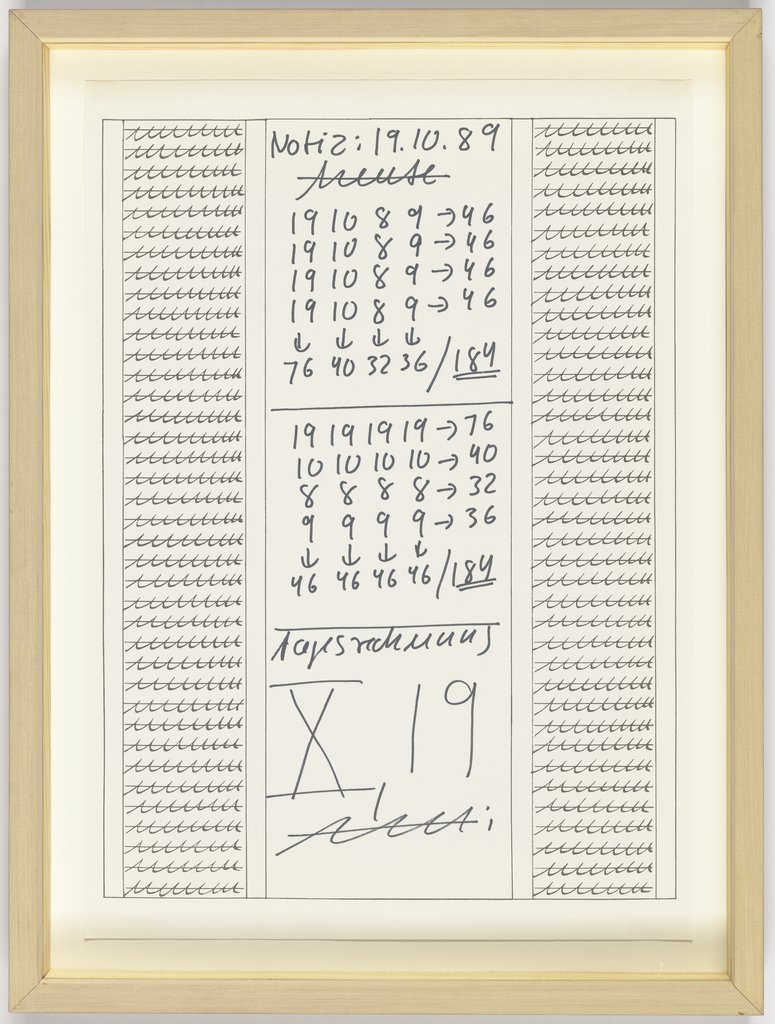 Notiz: 19.10.89
heute
19 10 8 9 → 46
19 10 8 9 → 46
19 10 8 9 → 46
19 10 8 9 → 46
↓ ↓ ↓ ↓
76 40 32 36 / 184
19 19 19 19 → 76
10 10 10 10 → 40
8 8 8 8 → 32
9 9 9 9 → 36
↓ ↓ ↓ ↓
46 46 46 46 / 184
Tagesrechnung
X, 19